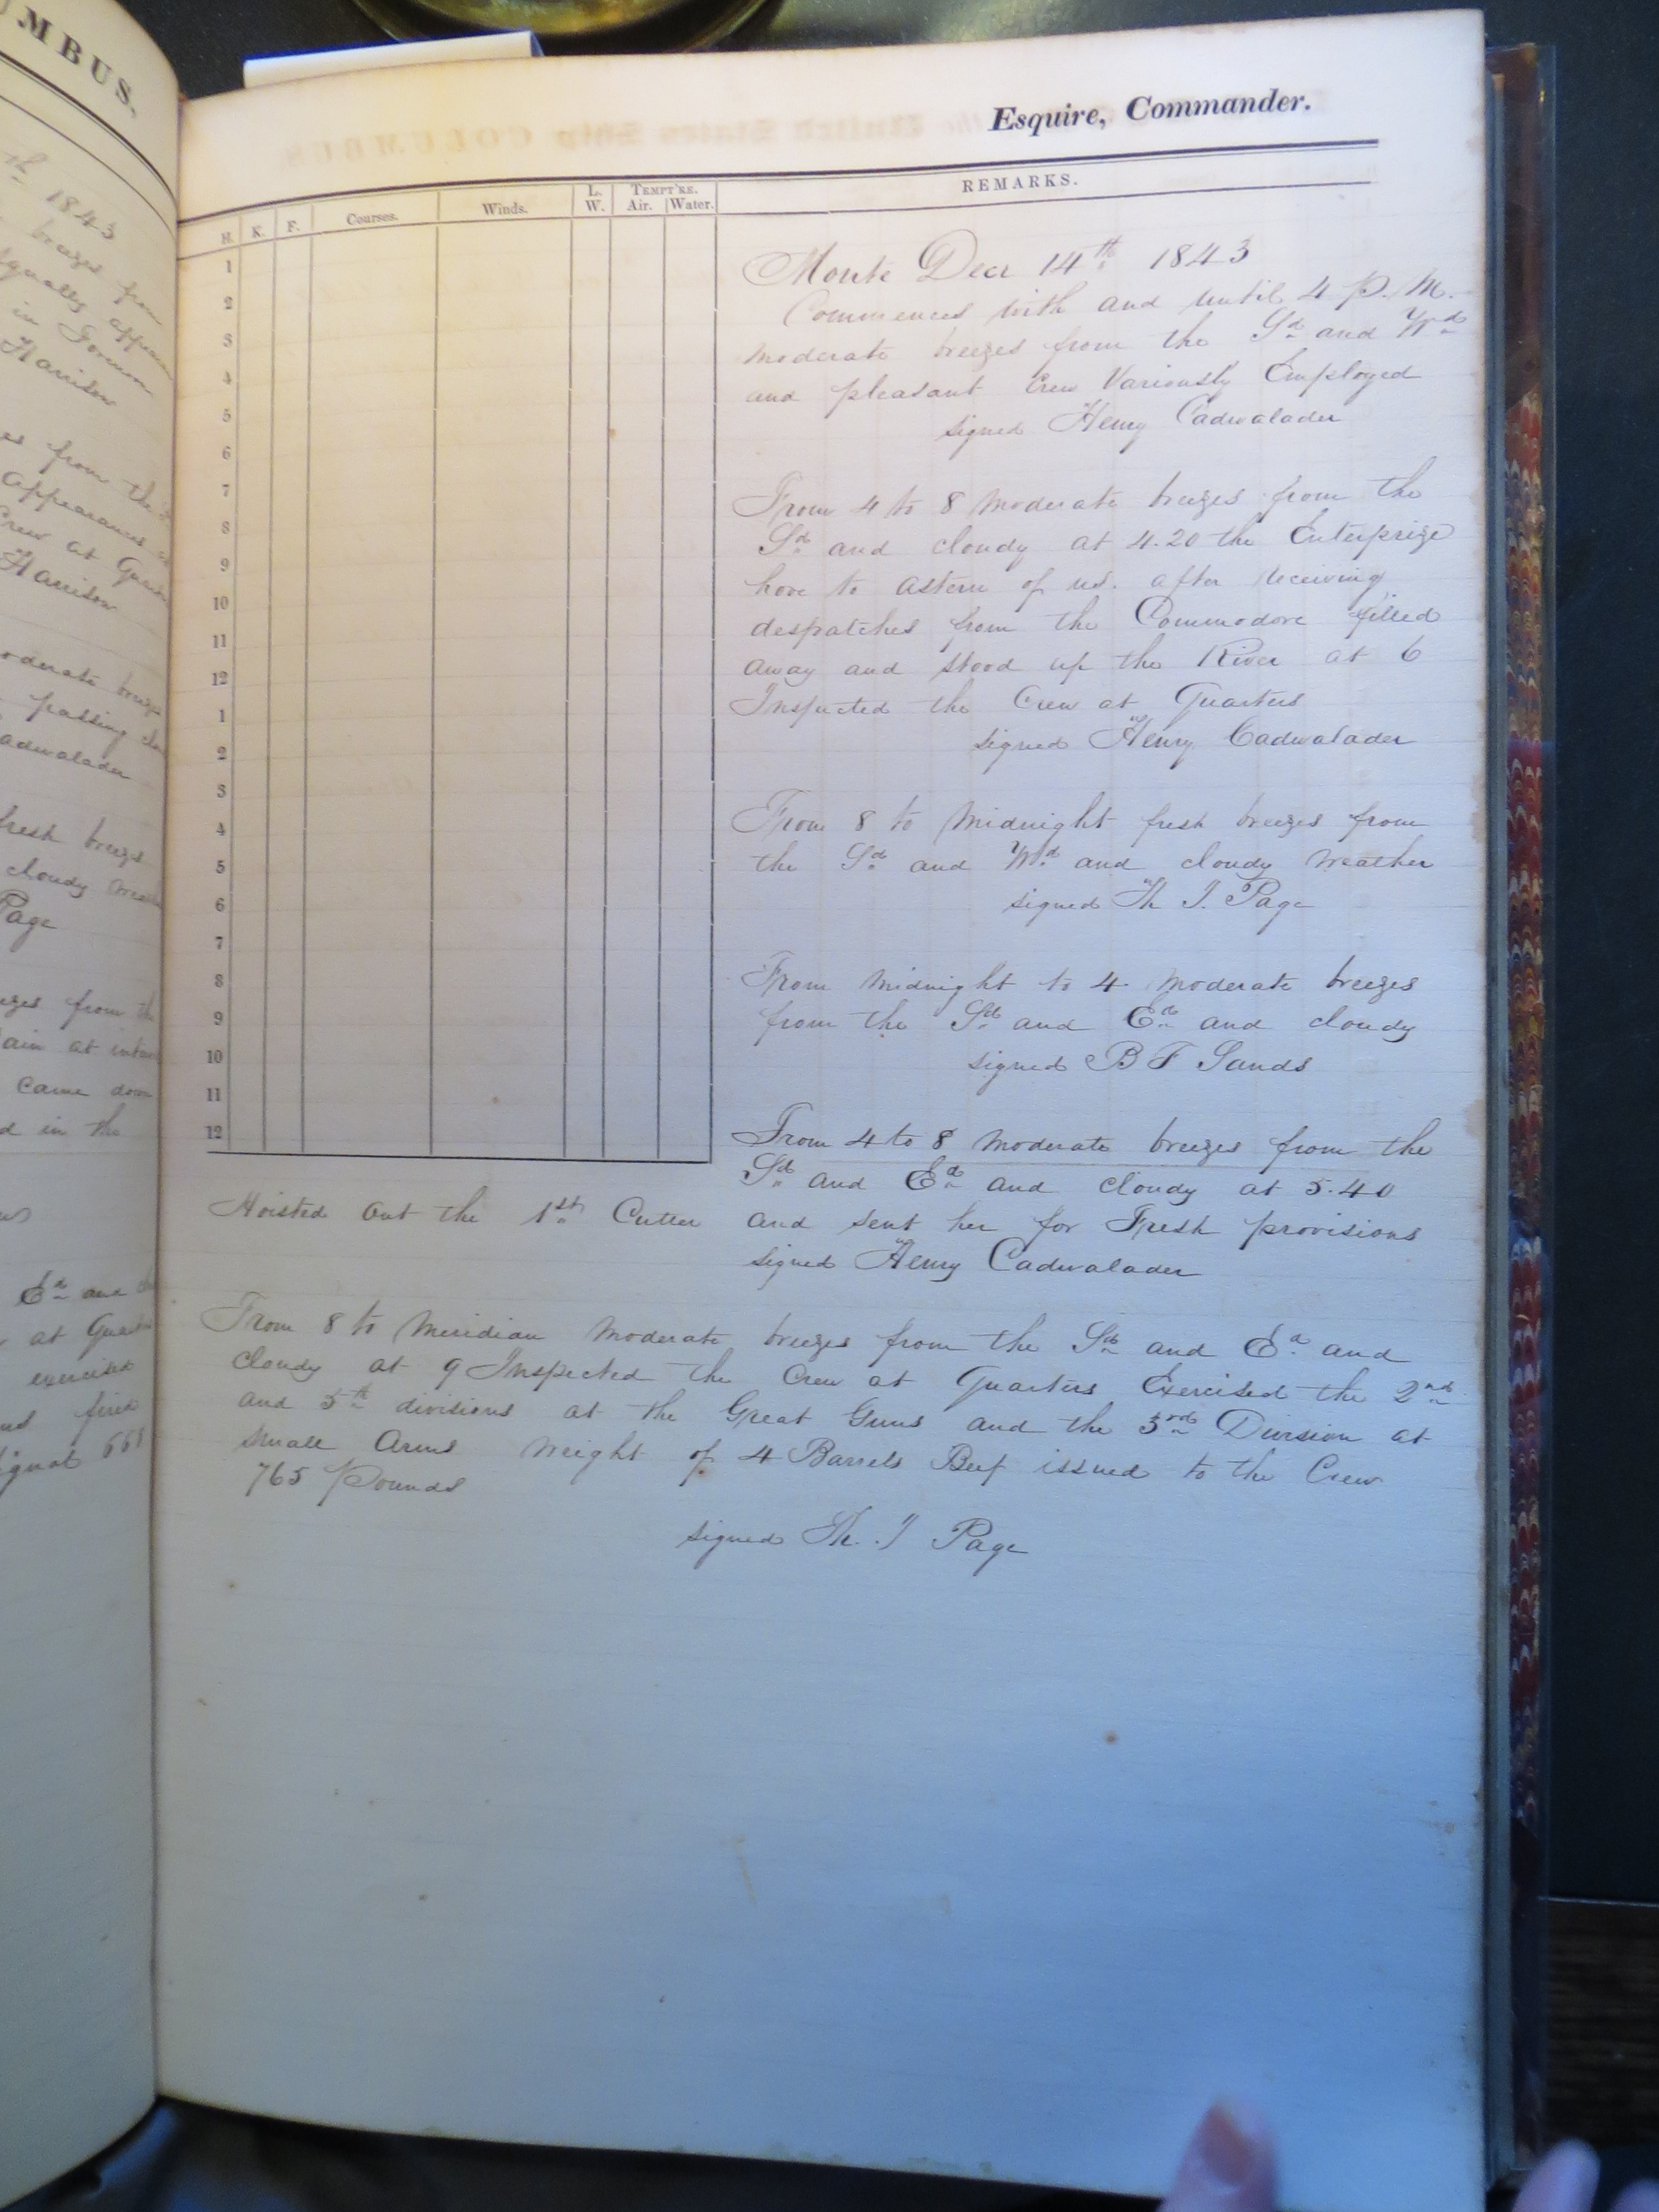 UMBUS.
th 1843
breezes from
in
Harrison
es from the
appearances
Crew at Quarters
Harrison
moderate breezes
passing
Cadwalader
fresh breezes
cloudy
Page
from the
at
came down
d in the
Ed and
at
exercised
fired
Esquire, Commander.
H. K. F. Courses. Winds. L. W. TEMPT'RE. Air. Water. REMARKS.
1
2
3
4
5
6
7
8
9
10
11
12
1
2
3
4
5
6
7
8
9
10
11
12
Monte Decr 14th 1843
Commences with and until 4 P.M.
moderate breezes from the Sd and Wd
and pleasant Crew Variously Employed
signed Henry Cadwalader
From 4 to 8 moderate breezes from the
Sd and cloudy at 4.20 the Enterprize
hove to astern of us. after receiving
despatches from the Commodore filled
away and stood up the River at 6
Inspected the Crew at Quarters
signed Henry Cadwalader
From 8 to Midnight fresh breezes from
the Sd and Wd and cloudy weather
signed Th J. Page
From midnight to 4 moderate breezes
from the Sd and Ed and cloudy
signed B F Sands
From 4 to 8 moderate breezes from the
Sd and Ed and cloudy at 5.40
Hoisted out the 1st Cutter and sent her for Fresh provisions
signed Henry Cadwalader
From 8 to Meridian moderate breezes from the Sd and Ed and
cloudy at 9 Inspected the Crew at Quarters Exercised the 2nd
and 5th divisions at the Great Guns and the 3rd Division at
small Arms Weight of 4 Barrels Beef issued to the Crew
765 Pounds
signed Th. J Page